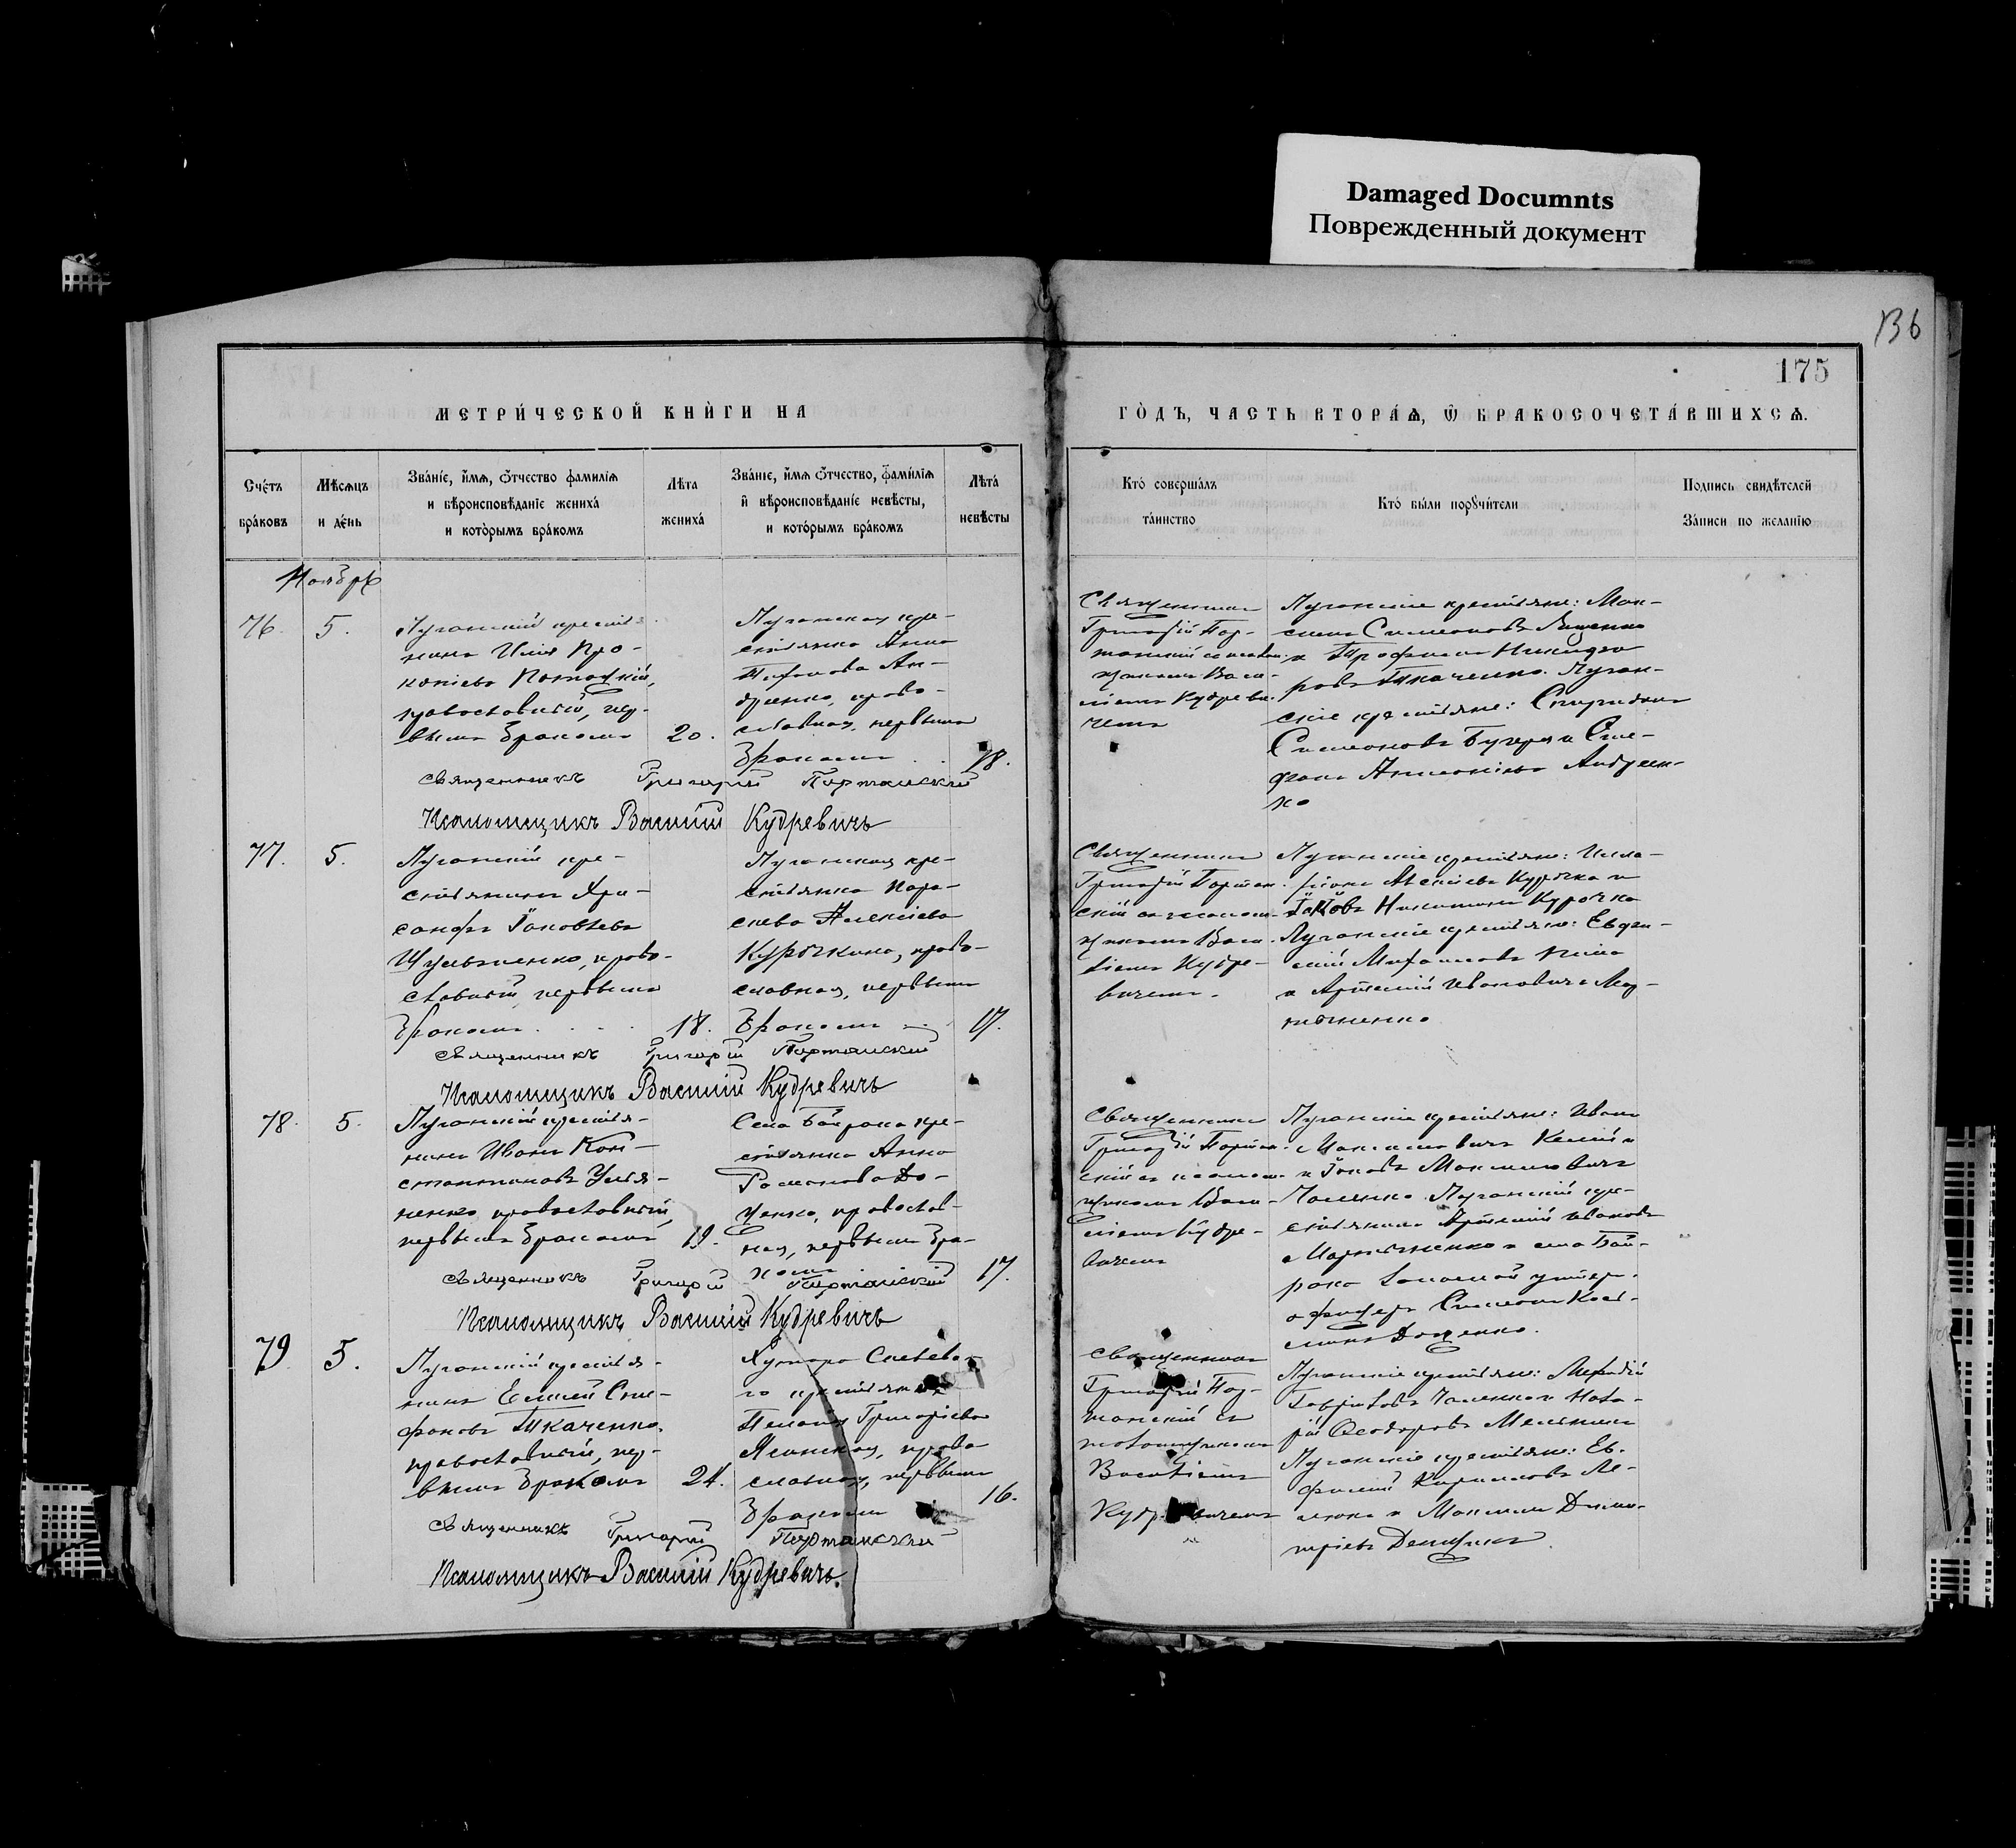 Damaged Documnts
Поврежденный документ
136
175
МЕТРИ́ЧЕСКОЙ КНЍГИ НА
ГО̀ДЪ, ЧАСТЬ ВТОРА́Ѧ, Ѽ БРАКОСОЧЕТА́ВШИХСѦ.
Сче́тъ
бра́ковъ
Мѣсѧцъ
и де́нь
Зва́нїе, и́мѧ, ѻ҆́тчество фамилїѧ
и вѣроисповѣданїе жениха́
и кото̀рымъ бра́комъ
Лѣта
жениха́
Зва́нїе, и́мѧ ѻ҆́тчество, фами́лїѧ
и҆ вѣроисповѣданїе невѣсты,
и кото́рымъ бра́комъ
Лѣта̀
невѣсты
Кто̀ соверша́лъ
та́инство
Кто̀ бы́ли порꙋчи́тели
Подпись свидѣтелей
За́писи по жела́нїю
Ноябрь
76.
5.
Луганскій крестья-
нинъ Илія Про-
копіевъ
православный, пер-
вымъ бракомъ
20.
Луганская кре-
стьянка Анна
Ан-
дренко, право-
славная, первымъ
бракомъ
18.
Священникъ
Григорій Пор-
танскій съ псалом-
щикомъ Васи-
ліемъ Кудреви-
чемъ
Луганскіе крестьяне: Мак-
симъ Симеоновъ Яценко
и Трофимъ Никифо-
ровъ Ткаченко. Луган-
скіе крестьяне: Спиридонъ
Симеоновъ и Сте-
фанъ Андреен-
ко
Священникъ Григорій Портанскій
Псаломщикъ Василій Кудревичъ
77.
5.
Луганскій кре-
стьянинъ Хри-
санфъ Іаковлевъ
право-
славный, первымъ
бракомъ
18.
Луганская кре-
стьянка Пара-
скева Алексіева
Курочкина, право-
славная, первымъ
бракомъ
17.
Священникъ
Григорій Портан-
скій съ псалом-
щикомъ Васи-
ліемъ Кудре-
вичемъ.
Луганскіе крестьяне:
Алексіевъ Курочка и
Іаковъ Никитинъ Курочка
Луганскіе крестьяне: Евдо-
кій Михаиловъ
и Артемій Ивановичъ Мар-
тыненко
Священникъ Григорій Портанскій
Псаломщикъ Василій Кудревичъ
78.
5.
Луганскій крестья-
нинъ Иванъ Кон-
стантиновъ Улья-
ненко православный,
первымъ бракомъ
19.
Села Байрака кре-
стьянка Анна
Романова До-
ценко, православ-
ная, первымъ бра-
комъ
17.
Священникъ
Григорій Портан-
скій съ псалом-
щикомъ Васи-
ліемъ Кудре-
вичемъ
Луганскіе крестьяне: Иванъ
и Іаковъ Максимовичъ
Луганскій кре-
стьянинъ Артемій Ивановъ
Мартыненко и села Бай-
рака запасной унтеръ-
офицеръ Симеонъ
Доценко.
Священникъ Григорій Портанскій
Псаломщикъ Василій Кудревичъ
79
5.
Луганскій крестья-
нинъ Елисей Сте-
фановъ Ткаченко,
православный, пер-
вымъ бракомъ
24.
Хутора
го крестьянка
Пелагія Григоріева
право-
славная, первымъ
бракомъ
16.
Священникъ
Григорій Пор-
танскій съ
псаломщикомъ
Василіемъ
Луганскіе крестьяне:
Гавріиловъ
Ѳеодоровъ Мельникъ
Луганскіе крестьяне: Ев-
фимій Кирилловъ
и Максимъ Дими-
тріевъ
Священникъ Григорій Портанскій
Псаломщикъ Василій Кудревичъ.